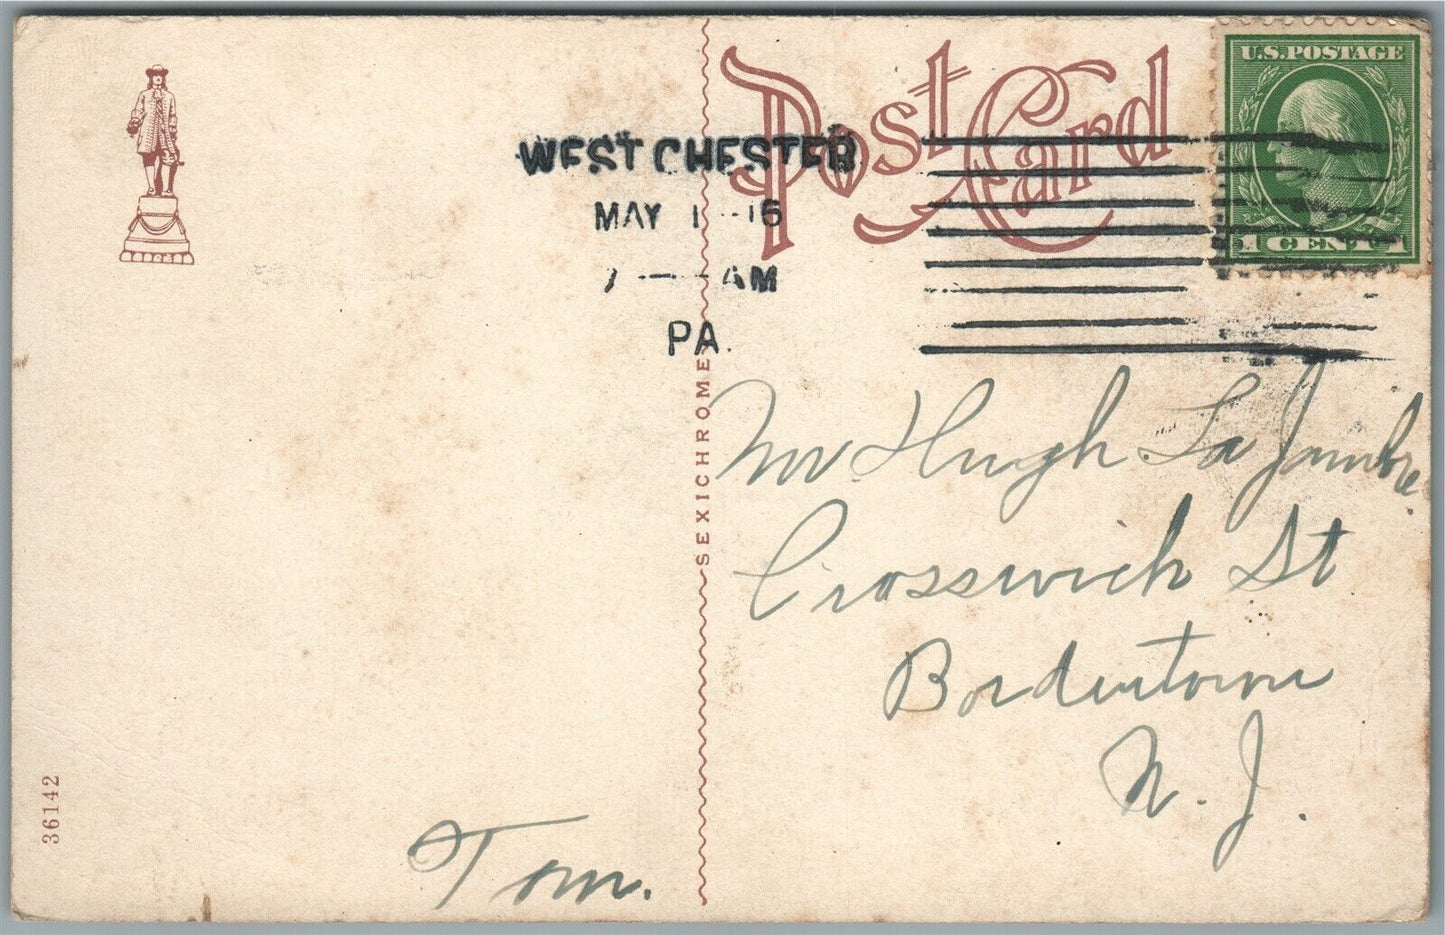 Post Card
U.S.POSTAGE
1 CENT 1
WEST CHESTER
MAY 1 -16
7 - AM
PA.
SEXICHROME
Mr Hugh La Jambre
Crosswich St
Bordentown
N. J.
Tom.
36142